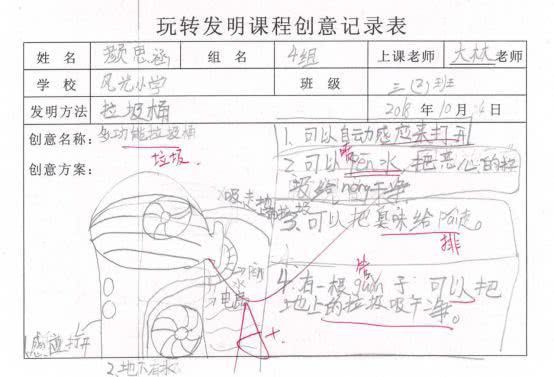 玩转发明课程创意记录表
姓 名 颜思涵 组 名 4组 上课老师 大林老师
学 校 风光小学 班 级 三(2)班
发明方法 垃圾桶 2018年10月 日
创意名称: 多功能垃圾桶
垃圾.
创意方案:
1.可以自动感应来打开
2.可以pēn水,把恶心的垃
喷
圾给nòng干净
3.可以把臭味给pái走。
排
4.有一根guǎn子,可以把
管
地上的垃圾吸干净。
吸走
水
A+
1.感应打开
2.地下有水